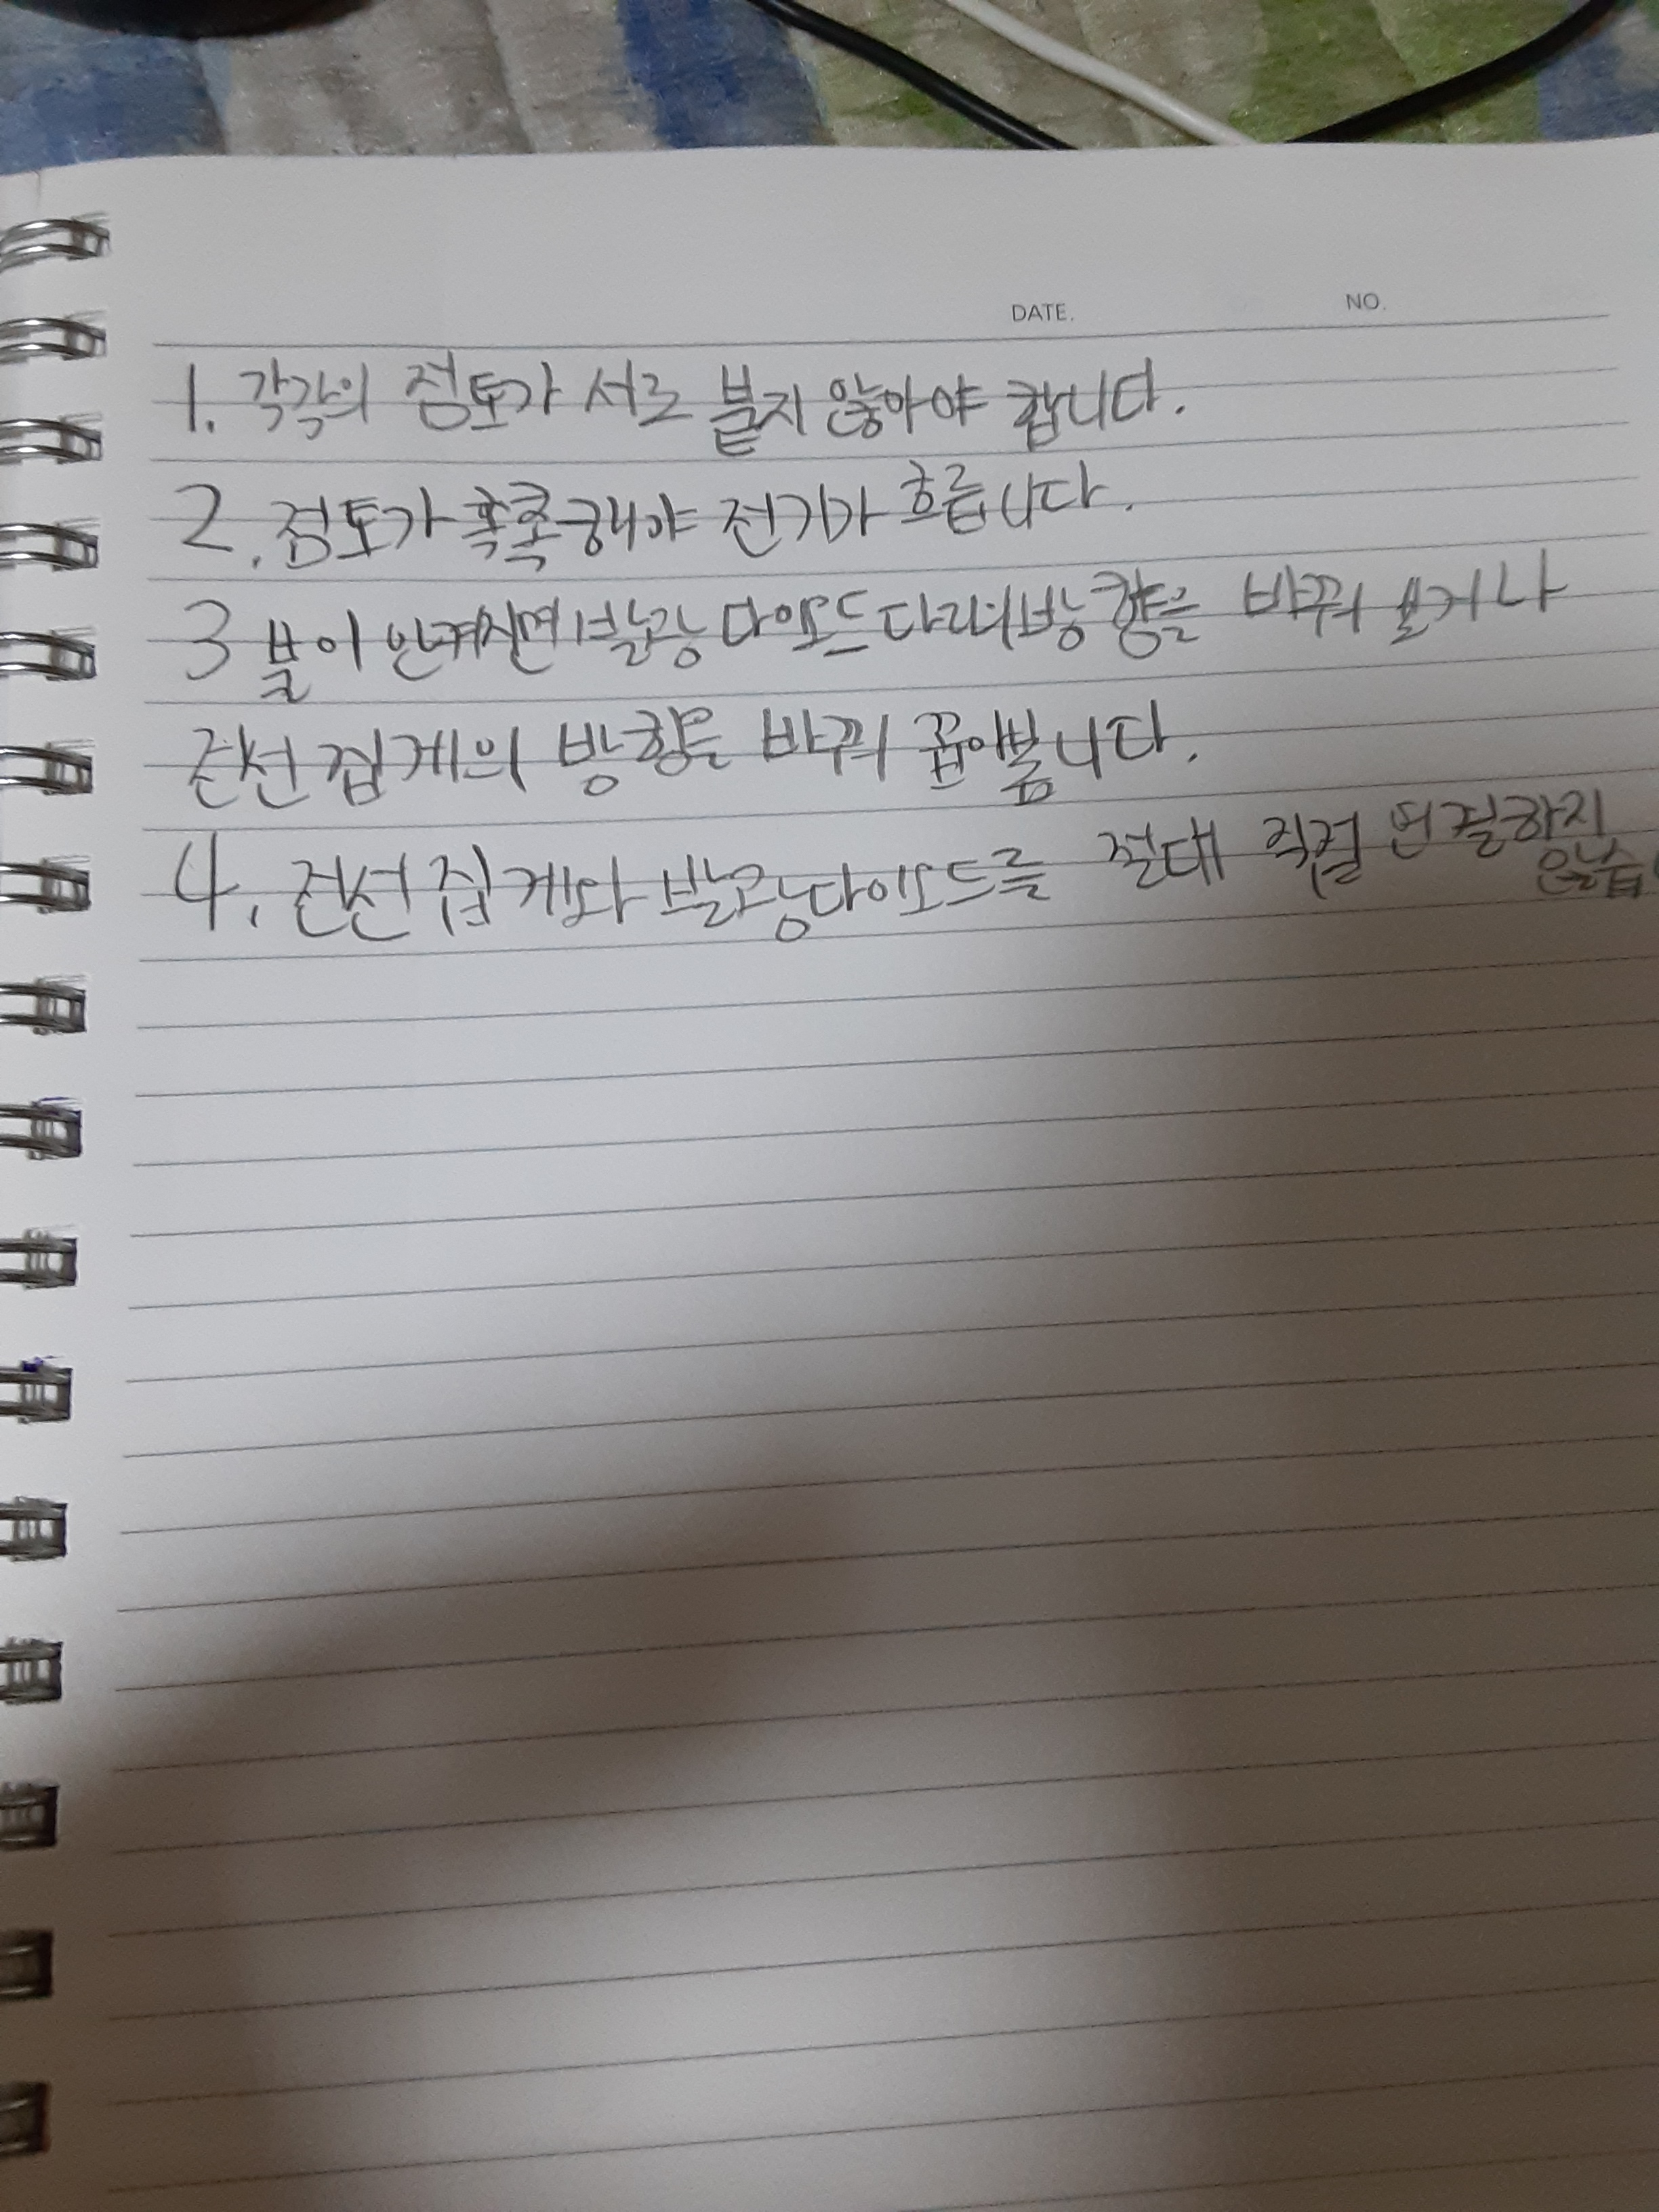 DATE. NO.
1. 각각의 점토가 서로 붙지 않아야 합니다.
2. 점토가 촉촉해야 전기가 흐릅니다.
3 불이 안켜지면 발광다이오드 다리 방향을 바꿔 보거나
전선 집게의 방향을 바꿔 꼽아봅니다.
4. 전선 집게와 발광다이오드를 절대 직접 연결하지
않습